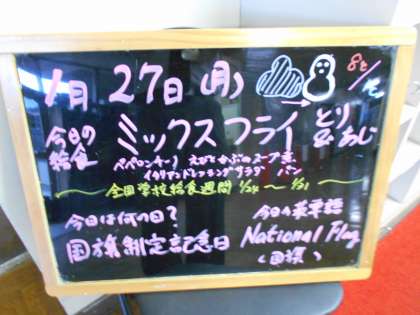 1月27日(月) 8℃/
今日の給食 ミックスフライ とり&あじ
ペペロンチーノ えびとかぶのスープ煮
イタリアンドレッシングサラダ パン
~全国学校給食週間 1/24~1/31~
今日は何の日? 今日の英単語
国旗制定記念日 National Flag
(国旗)